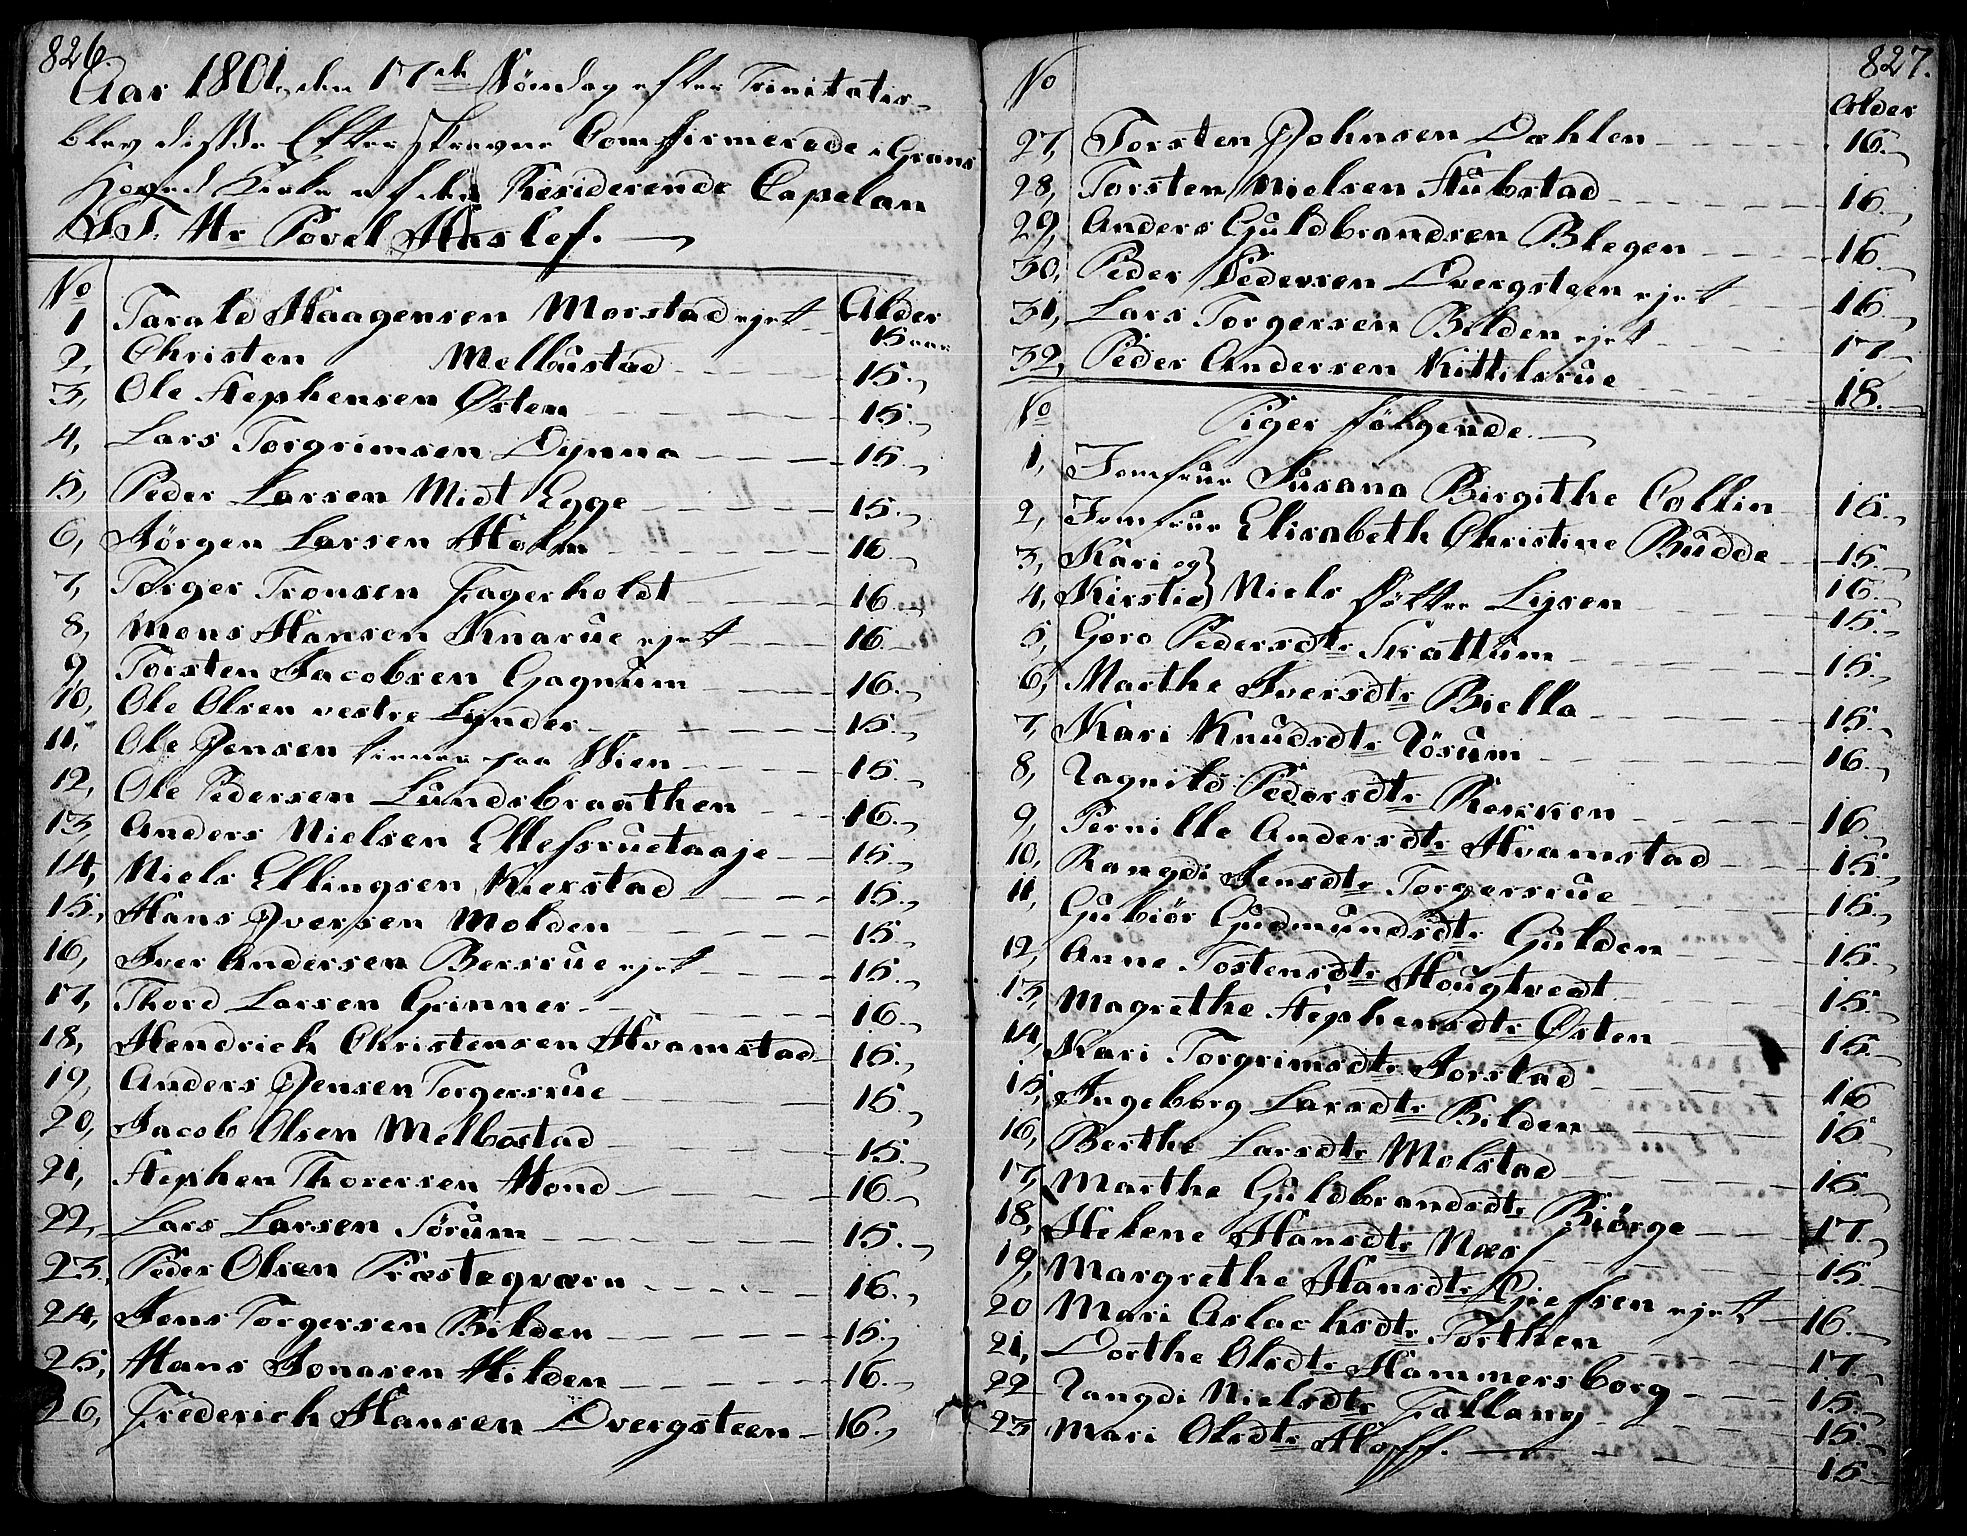 826.
Aar 1801, den 17de Söndag efter Trinitatis
blev disse Efterskrevne Comfirmerede i Grans
Hoved Kirke af den Residerende Capelan
S.T. Hr Povel Haslef.
No Alder
1 Tarald Haagensen Morstad ejet 15 aar
2, Christen Melbustad 15.
3, Ole Stephensen Østen 15.
4, Lars Torgrimsen Dynna 15.
5, Peder Larsen Midt Egge 15.
6, Jörgen Larsen Holm 16.
7, Torger Tronsen Fagerholdt 16.
8, Mons Hansen Knarue ejet 16.
9, Torsten Jacobsen Gagnum 16.
10, Ole Olsen vestre Lynder 15.
11, Ole Jensen tienner paa Hien 15.
12, Ole Pedersen Lundsbraathen 16.
13, Anders Nielsen Ellefsruetaaje 15.
14, Niels Ellingsen Kierstad 15.
15, Hans Iversen Molden 15.
16, Iver Andersen Bersrue ejet 15.
17, Thord Larsen Grinner 16.
18, Hendrich Christensen Hvamstad 15.
19, Anders Jensen Torgersrue 15.
20, Jacob Olsen Melbostad 15.
21, Stephen Thorersen Hond 16.
22, Lars Larsen Sörum 15.
23, Peder Olsen Præsteqværn 16.
24, Jens Torgersen Bilden 15.
25, Hans Jonasen Hilden 16.
26, Frederich Hansen Dvergsteen 16.
827.
No Alder
27, Torsten Johnsen Dæhlen 16.
28, Torsten Nielsen Hubstad 16.
29, Anders Guldbrandsen Blegen 16.
30, Peder Pedersen Dvergsteen ejet 16.
31, Lars Torgersen Bilden ejet 17.
32, Peder Andersen Kittilsrue 18.
No Piger fölgende.
1, Jomfrue Susana Birgithe Collin 15.
2, Jomfrue Elisabeth Christine Budde 15.
3, Kari og 16.
4, Kirstie Niels Döttre Lysen 15.
5, Goro Pedersdtr Skattum 15.
6, Marthe Iversdtr Biella 15.
7, Kari Knudsdtr Rösum 16.
8, Ragnild Pedersdtr Rækken 16.
9, Pernille Andersdtr Hvamstad 15.
10, Rangdi Jensdtr Torgersrue 15.
11, Gubiör Gudmundsdtr Gulden 15.
12, Anne Tostensdtr Hougtvedt 15.
13, Magrethe Stephensdtr Østen 15.
14, Kari Torgrimsdtr Jorstad 16
15, Ingeborg Larsdtr Bilden 15.
16, Berthe Larsdtr Molstad 15.
17, Marthe Guldbrandsdtr Biörge 17.
18, Helene Hansdtr Næs 15.
19, Margrethe Hansdtr ejet 16.
20 Mari Aslachsdtr Torthen 17.
21, Dorthe Olsdtr Hammersborg 15.
22 Rangdi Nielsdtr Fallang 15.
23 Mari Olsdtr Hoff. 15.